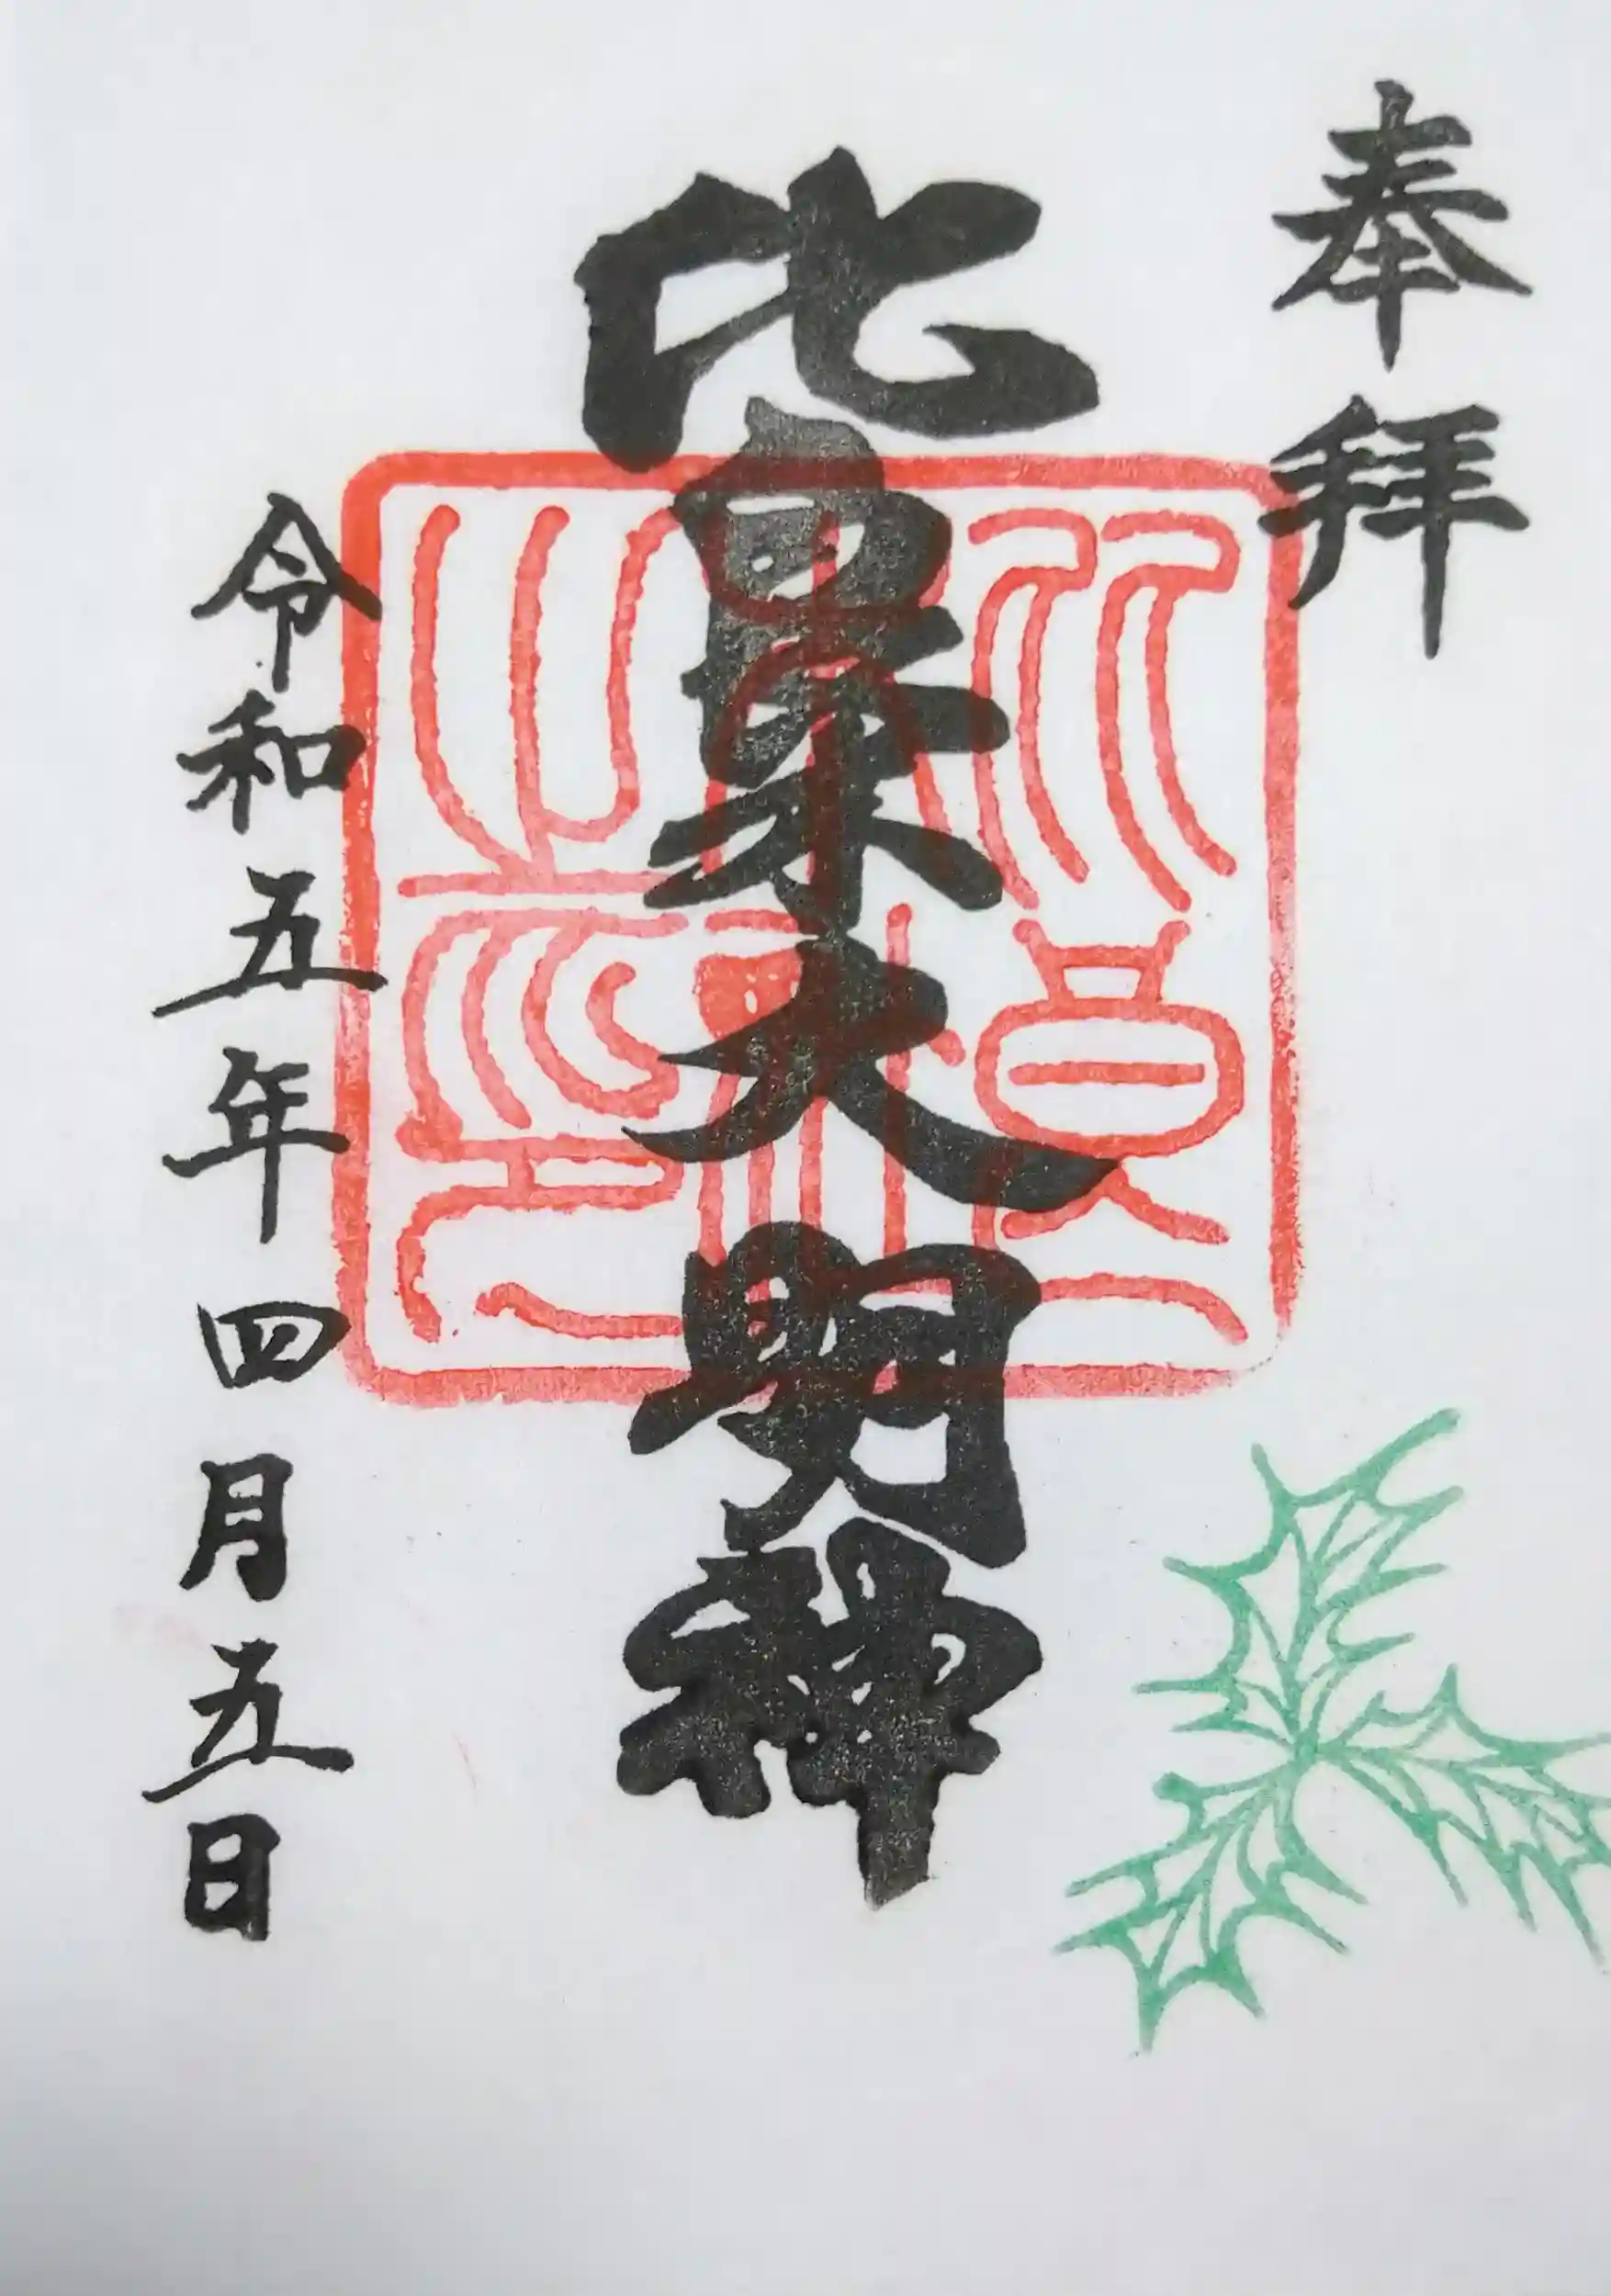 奉拝
比 大明神
令和五年四月五日